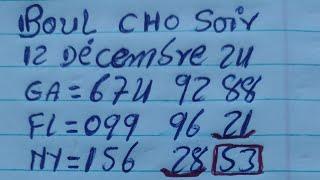 BOUL CHO SOIR
12 Décembre 24
GA = 674 92 88
FL = 099 96 21
NY = 156 28 53